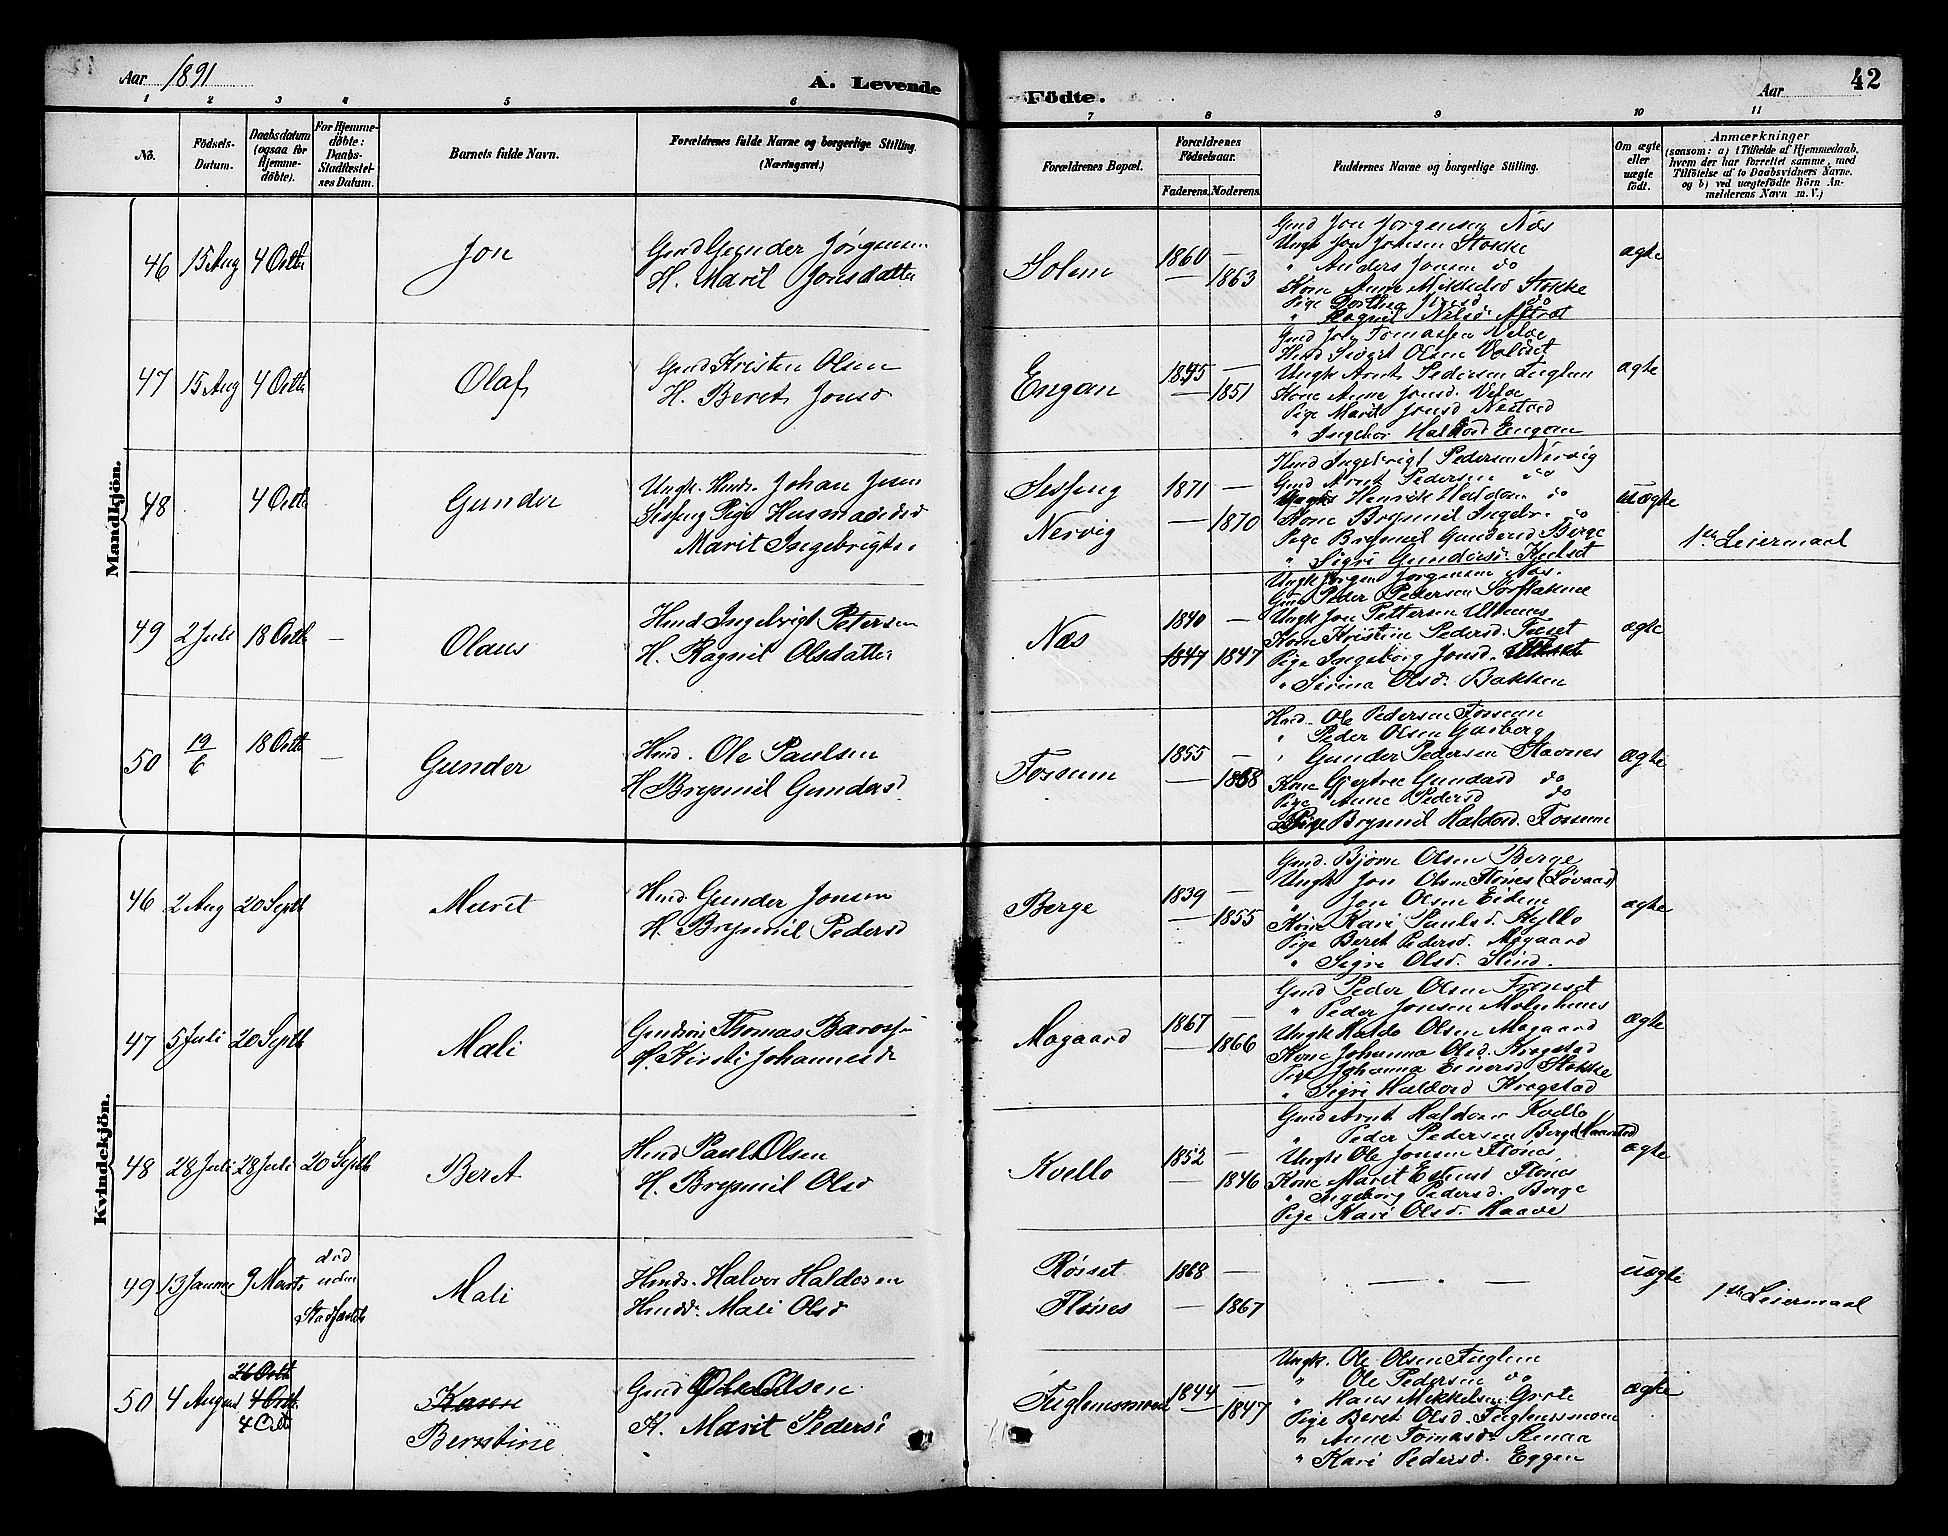 Aar 1891
A. Levende
Födte.
Aar
42
1 2 3 4 5 6 7 8 9 10 11
No.
Födsels-Datum.
Daabsdatum (ogsaa for Hjemme-döbte).
For Hjemme-döbte: Daabs-Stadfæstel-ses Datum.
Barnets fulde Navn.
Forældrenes fulde Navne og borgerlige Stilling. (Næringsvei.)
Forældrenes Bopæl.
Forældrenes Födselsaar.
Faderens. Moderens.
Faddernes Navne og borgerlige Stilling.
Om ægte eller uægte födt.
Anmærkninger
(saasom: a) i Tilfælde af Hjemmedaab, hvem der har forrettet samme, med Tilföielse af to Daabsvidners Navne. og b) ved uægtefödte Börn An-melderens Navn m. V.)
Mandkjön.
46 15 Aug 4 Octb Jon
Gmd Gunder Jørgensen
H. Marit Jonsdatter
Solem 1860 — — 1863
Gmd Jon Jorgensen Næs
Ungk Jon Johnsen Stokke
" Anders Jonsen do
Kone Anne Mikkelsd Stokke
Pige Dorthea do
" Ragnil Nilsd.
ægte
47 15 Aug 4 Octb Olaf
Gmd Kristen Olsen
H. Beret Jonsd
Engan — 1851
Gmd Jon Tomassen Velve
Hmd Sivert Olsen Volset
Ungk Arnt Pedersen Fuglem
Kone Anne Jonsd. Velve
Pige Marit Jonsd Nestad
" Ingebor Haldord Engan
ægte
48 4 Octb Gunder
Ungk. Hmds. Johan Jensen
Sesseng Pige Husmandsd
Marit Ingebrigts.
Sesseng
Nervig
1871 — — 1870
Hmd Ingebrigt Pedersen Nervig
Gmd Arnt Pedersen do
Ungk Henrik Haldorsen do
Kone Brynnil Ingebr. do
Pige Brynnil Gundersd Berge
" Sigri Gundersd.
uægte
1ste Leiermaal
49 2 Juli 18 Octb — Olaus
Hmd Ingebrigt Petersen
H. Ragnil Olsdatter
Næs 1840 — 1847 1847
Ungk Jørgen Jorgensen Næs.
Gmd Peder Pedersen
Ungk Jon Pettersen
Kone Kristine Pedersd. Fosset
Pige Ingeborg Jonsd.
" Sirina Olsd. Bakken
ægte
50 19/6 18 Octb — Gunder
Hmd. Ole Paulsen
H Brynnil Gundersd.
Fossum 1855 — — 1858
Hmd. Ole Pedersen Fossum
" Peder Olsen Garberg
" Gunder Pedersen Stavnes
Kone Gjertru Gundersd do
Pige Anne Pedersd do
Pige Brynnil Haldord. Fossum
ægte
Kvindekjön.
46 2 Aug 20 Septb Marit
Hmd. Gunder Jonsen
H. Brynnil Pedersd
Berge 1839 — — 1855
Gmd. Bjørn Olsen Berge
Ungk Jon Olsen Flønes (Løvaas)
" Jon Olsen Eidem
Kone Kari Paulsd. Kyllo
Pige Beret Pedersd. Mogaard
" Sigri Olsd. Slind.
ægte
47 5 Juli 20 Septb Mali
Gmdsøn Thomas
H. Kirsti Johannesd
Mogaard 1867 — — 1866
Gmd Peder Olsen Fronset
" Peder Jonsen
Ungk Haldo Olsen Mogaard
Kone Johanna Olsd. Krogstad
Pige Johanna Einersd Stokke
" Sigri Haldord Krogstad
ægte
48 28 Juli 28 Juli 20 Septb Beret
Hmd Paul Olsen
H. Brynnil Olsd
Kvello 1852 — — 1846
Gmd Arnt Haldorsen Kvello
" Peder Pedersen Berge
Ungk Ole Jonsen Flønes
Kone Marit Estensd Flønes
" Ingeborg Pedersd. Berge
Pige Kari Olsd. Haave
ægte
49 13 Januar 9 Marts død uden Stadfæstels Mali
Hmds. Halvor Haldorsen
Hmdd. Mali Olsd
Røsset
Flønes
1868 — — 1867
— " —
uægte
1ste Leiermaal
50 4 August 26 Octb 4 Octb 4 Octb
Karen
Berntine
Gmd Ole Olsen
H. Marit Pedersd
Fuglemsmoen 1844 — — 1847
Ungk. Ole Olsen Fuglem
" Ole Pedersen do
" Hans Mikkelsen Grøte
Pige Beret Olsd. Fuglemsmoen
" Anne Tomasd.
" Kari Pedersd. Eggen
ægte